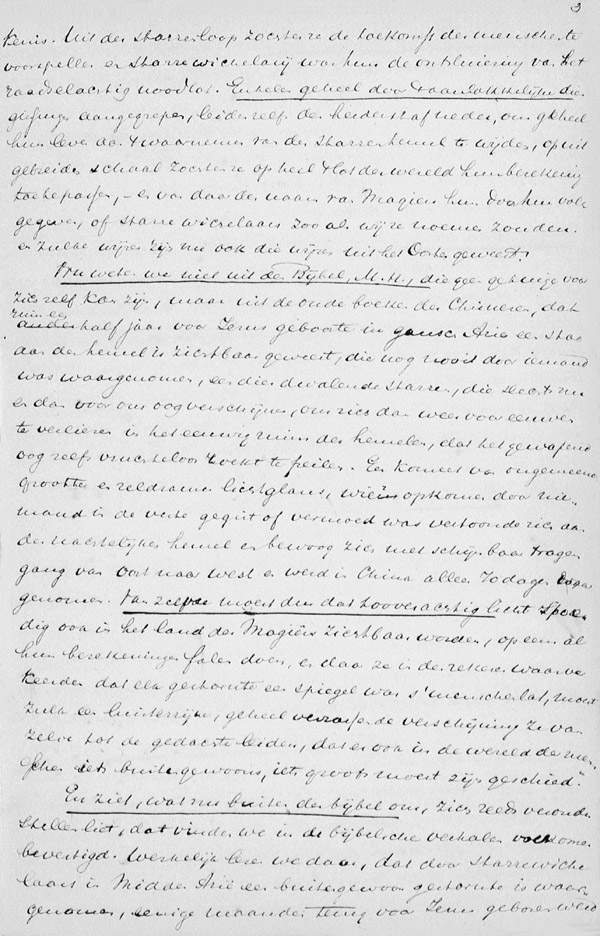 3
kenis. Uit den sterrenloop zochten ze de toekomst der menschen te
voorspellen en sterrewichelarij was hun de ontsluiering van het
raadselachtig noodlot. Enkelen geheel door
aangegrepen, leiden zelfs der heiden af om geheel
hun leven aan 't waarnemen van den sterrenhemel te wijden, op uit
gebreider schaal zochten ze op heel 't lot der wereld hun berekening
toe te passen, – en van daar de naam van Magiers hun door hun volk
gegeven, of sterrewichelaars zooals wij ze noemen zouden.
en zulke wijzen zijn nu ook die wijzen uit het Oosten geweest.
Nu weten we niet uit den Bijbel, M.H., die geen getuige voor
zich zelf kan zijn, maar uit de oude boeken der Chineezen, dat
ruim een
anderhalf jaar voor Jezus geboorte in gansch Azië een ster
aan den hemel is zichtbaar geweest, die nog nooit door iemand
was waargenomen, een dier dwalende sterren, die slechts nu
en dan voor ons oog verschijnen, om zich dan weer voor eeuwen
te verliezen in het eeuwig ruim der hemelen, dat het gewapend
oog zelfs vruchteloos zoekt te peilen. Een komeet van ongemeene
grootte en zeldzamen lichtglans, wiens opkomen door nie-
mand in de verte gegist of vermoed was vertoonde zich aan
den nachtelijken hemel en bewoog zich met schijnbaar tragen
gang van oost naar west en werd in China alleen 70 dagen waar
genomen. Van zelve moest dus dat tooverachtig licht spoe
dig ook in het land der Magiërs zichtbaar worden, op eenmaal
hun berekeningen falen doen, en daar ze in de zekere waan ver
keerden dat elk gesternte een spiegel was van 's menschen lot, moest
zulk een luisterrijke, geheel verrassende verschijning ze van
zelve tot de gedachte leiden, dat er ook in de wereld der men-
schen iets buitengewoons, iets groots moest zijn geschied.
En ziet, wat nu buiten den bijbel om, zich reeds veronder
stellen liet, dat vinden we in de bijbelsche verhalen volkomen
bevestigd. Werkelijk lezen we daar, dat door sterrewiche
laars in Midden Azië een buitengewoon gesternte is waar
genomen, eenige maanden voor Jezus geboren werd